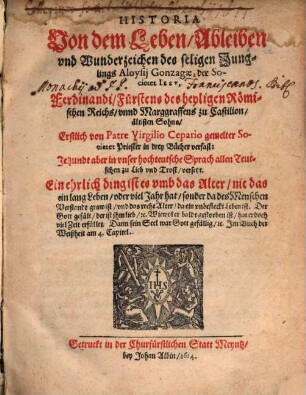 HISTORIA
Von dem Leben/Ableiben
vnd Wunderzeichen des seligen Jung-
lings Aloysij Gonzagæ, der So-
cietet IESV,
Ferdinandi/Fürstens des heyligen Römi-
schen Reichs/vnnd Marggraffens zu Castilion/
ältisten Sohns/
Erstlich von Patre Virgilio Cepario gemelter So-
cietet Priester in drey Bücher verfaßt:
Jezundt aber in vnser hochteutsche Sprach allen Teut-
schen zu Lieb vnd Trost/versetzt.
Ein ehrlich ding ist es vmb das Alter/nit das
ein lang Leben/oder viel Jahr hat/sonder da des Menschen
Verstandt graw ist/vnd das rechte Alter/da ein vnbefleckt Leben ist. Der
Gott gefält/der ist ihm lieb/ꝛc. Wiewol er baldt gestorben ist/hat er doch
viel Zeit erfüllet. Dann sein Seel war Gott gefällig/ꝛc. Im Buch der
Weißheit am 4. Capitel.
IHS
Getruckt in der Churfürstlichen Statt Meyntz/
bey Johan Albin/1614.